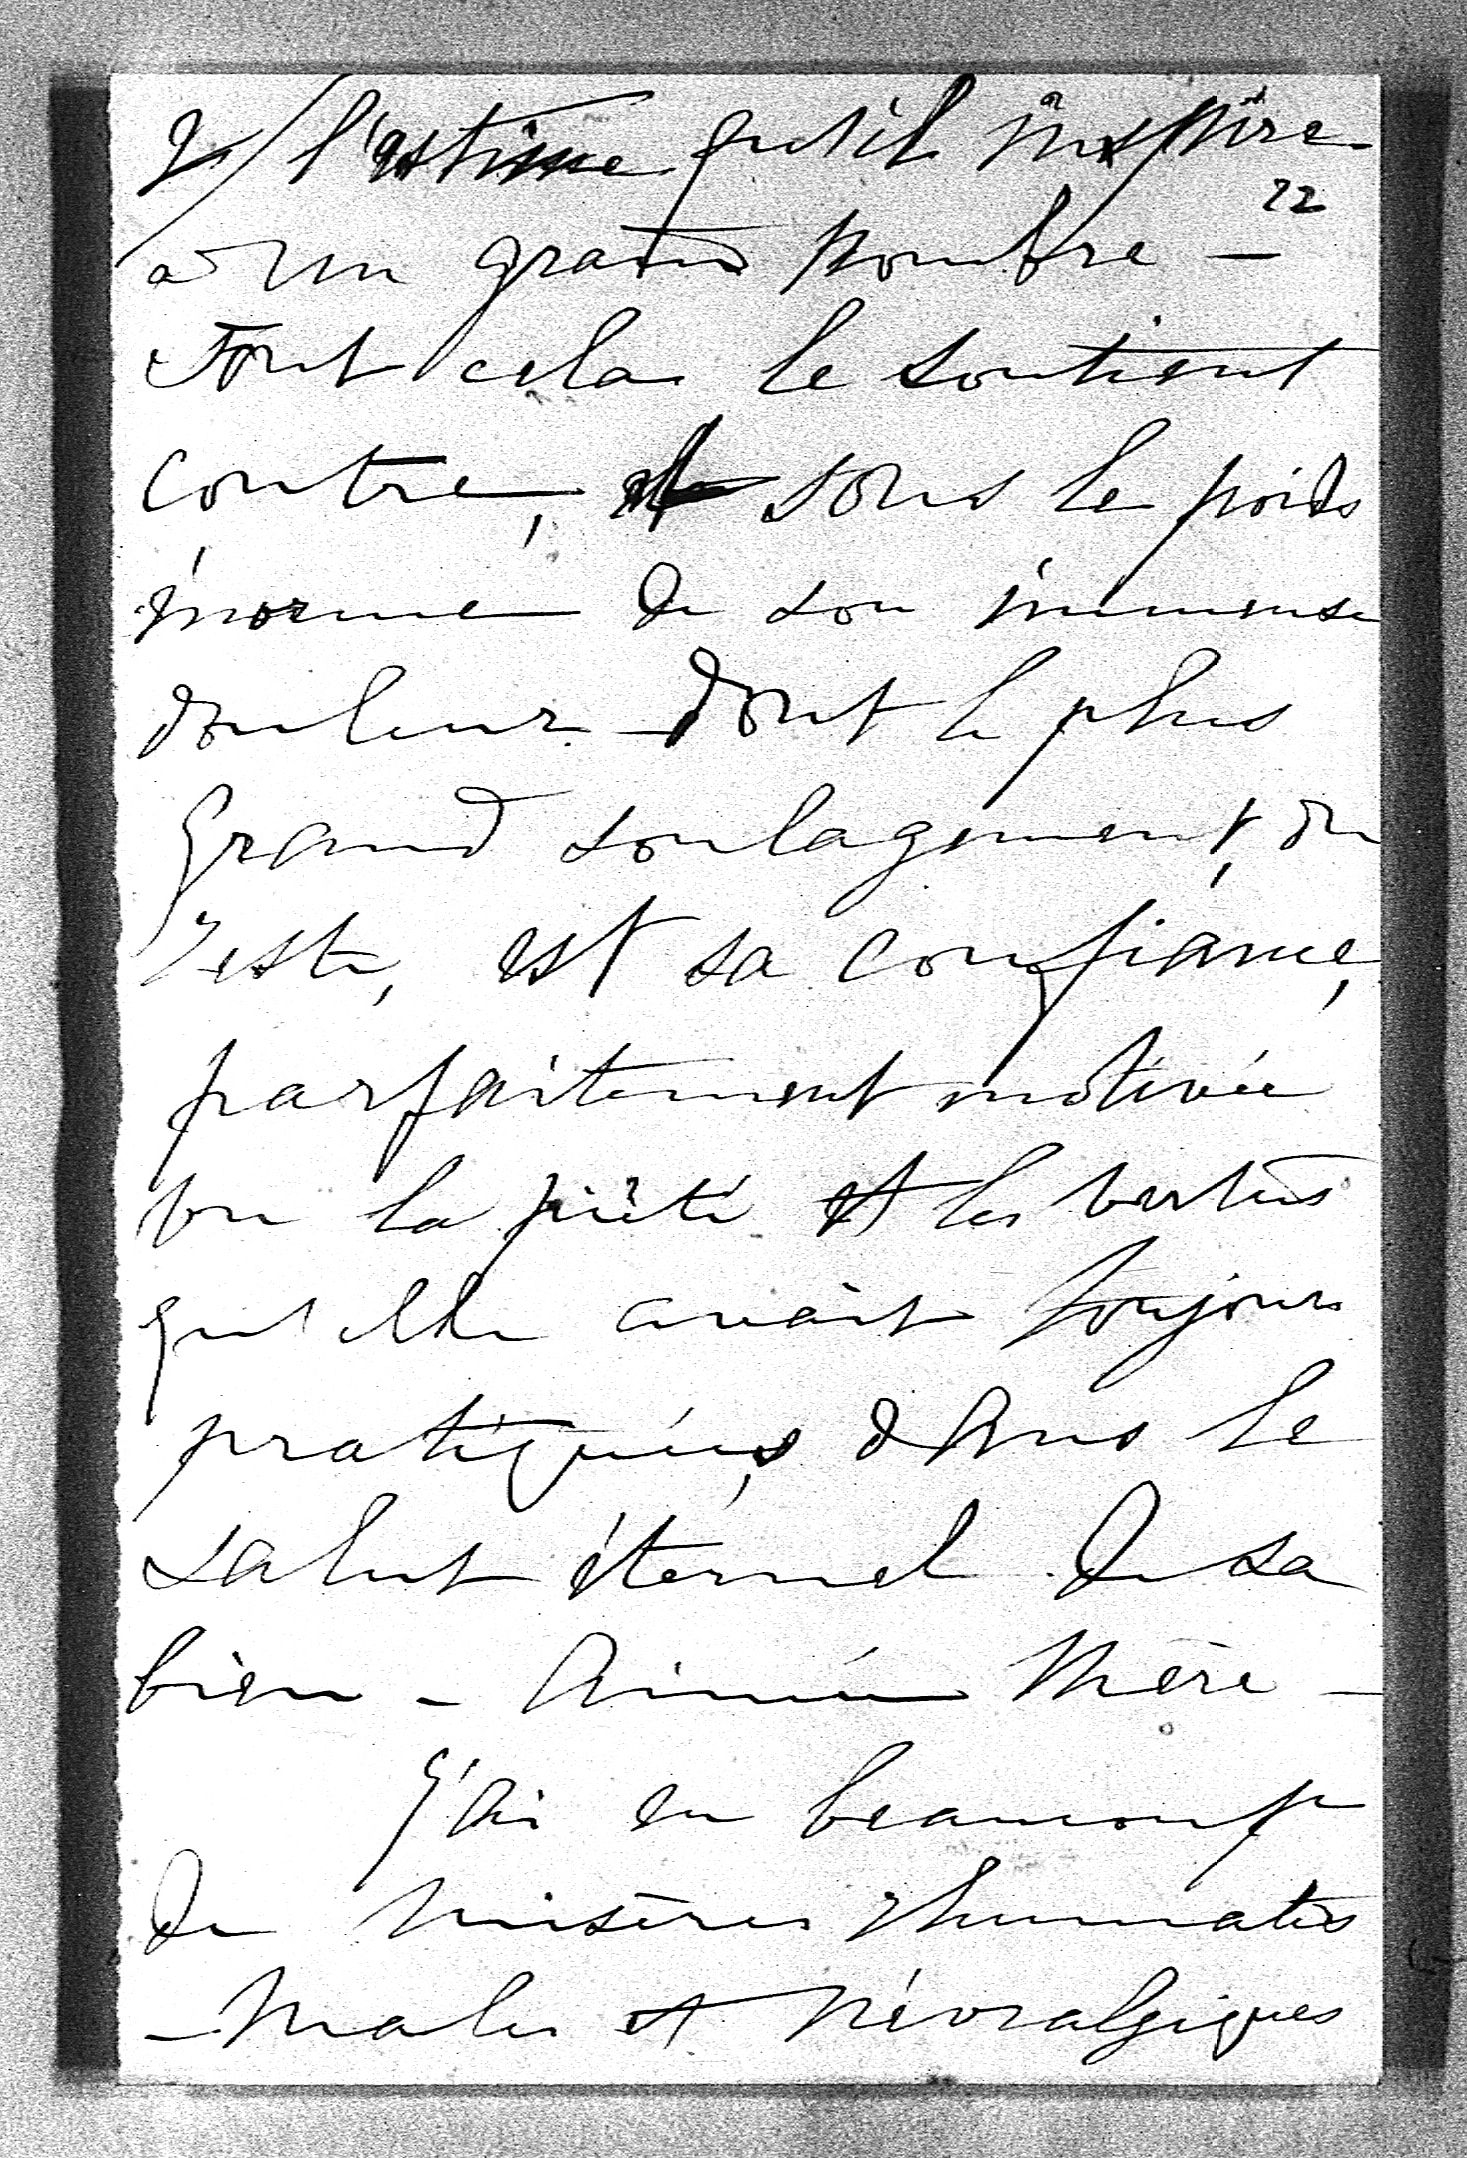 & l'estime qu'il inspire
22
à un grand nombre —
Tout cela le soutient
contre, sous le poids
énorme de son immense
douleur dont le plus
grand soulagement, du
reste, est sa confiance,
parfaitement motivée
vu la piété et les vertus
qu'elle avait toujours
pratiquées, dans le
salut éternel de sa
bien-Aimée Mère —
J'ai eu beaucoup
de misères rhumatis
-males et névralgiques